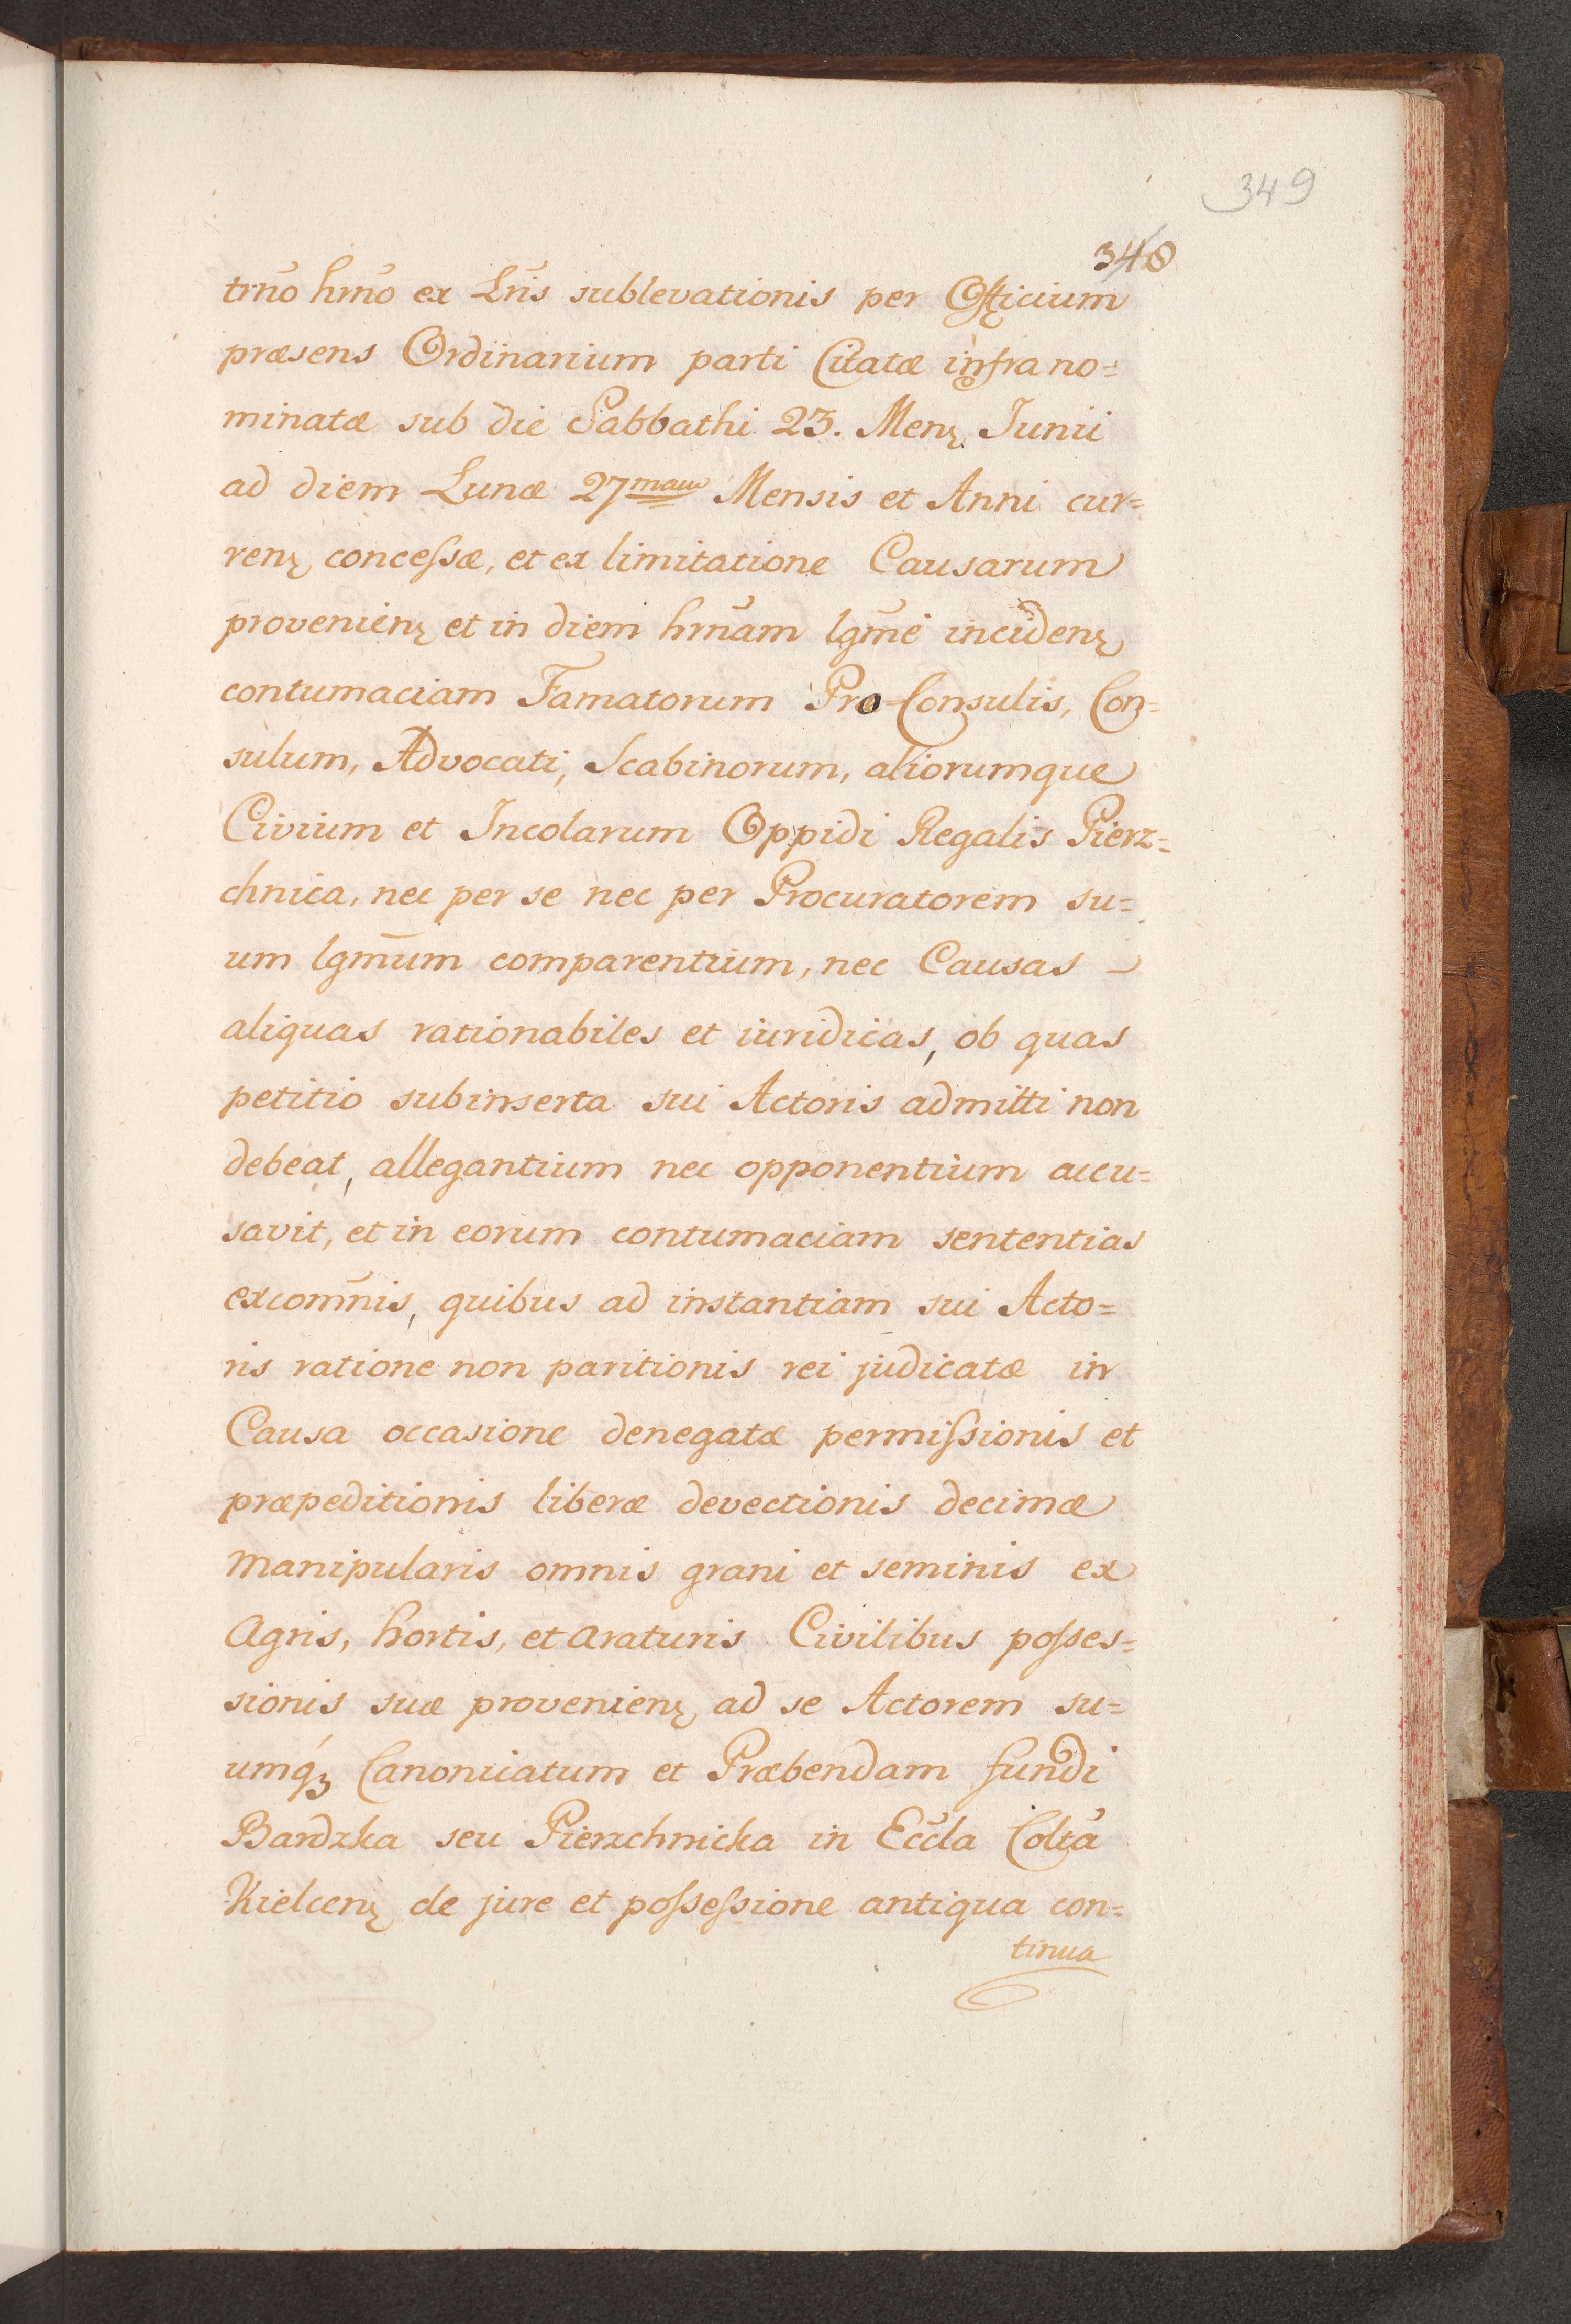 349
348
trn̄o hrn̄o ex Lrīs sublevationis per Officium
præsens Ordinarium parti Citatæ infra no=
minatæ sub die Sabbathi 23. Menș Junii
ad diem Lunæ 27mam Mensis et Anni cur=
renș concessæ, et ex limitatione Causarum
provenienș et in diem hrn̄am lgm̄e incidenș
contumaciam Famatorum Pro-Consulis, Con=
sulum, Advocati, Scabinorum, aliorumque
Civium et Incolarum Oppidi Regalis Pierz=
chnica, nec per se nec per Procuratorem su=
um lgm̄um comparentium, nec Causas -
aliquas rationabiles et iuridicas, ob quas
petitio subinserta sui Actoris admitti non
debeat, allegantium nec opponentium accu=
savit, et in eorum contumaciam sententias
excom̄nis, quibus ad instantiam sui Acto=
ris ratione non paritionis rei judicatæ in
Causa occasione denegatæ permissionis et
præpeditionis liberæ devectionis decimæ
manipularis omnis grani et seminis ex
Agris, hortis, et araturis Civilibus posses=
sionis suæ provenienș ad se Actorem su=
umqꝫ Canonicatum et Præbendam fundi
Bardzka seu Pierzchnicka in Eccl̄a Colt̄a
Kielcenș de jure et possessione antiqua con=
tinua